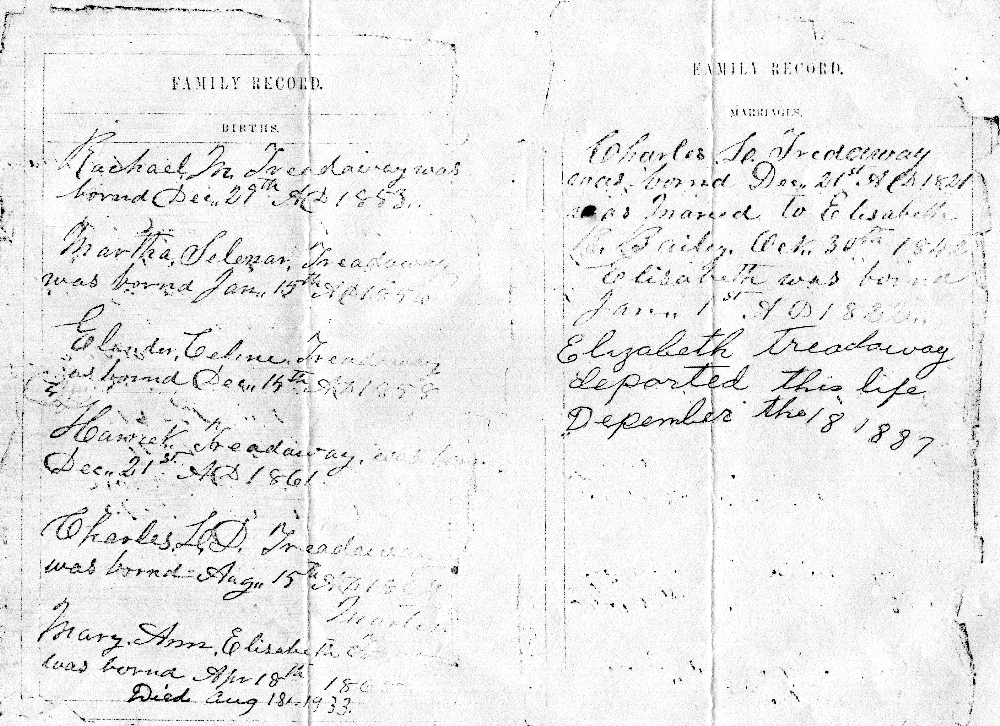 FAMILY RECORD.
BIRTHS.
Rachael, M. Treadaway was
bornd Dec,, 29th AD 1853.
Martha, Selenar, Treadaway
was bornd Jan,, 15th AD 185
Elender, Celine, Treadaway
was bornd Dec,, 14th AD 1858
Harriet. Treadaway, was born
Dec,, 21st AD 1861
Charles, L, D, Treadaway
was bornd Aug,, 15th AD 186
Martin
Mary, Ann, Elisabeth
was bornd Apr 18th 186
Died Aug 18 1933.
FAMILY RECORD.
MARRIAGES.
Charles Treadaway
was bornd Dec,, 21st AD 1821
was Maried to Elisabeth
Bailey. Oct. 30th 184
Elisabeth was bornd
Jan,, 1st AD 182
Elizabeth Treadaway
departed this life
Depember the 18 1887